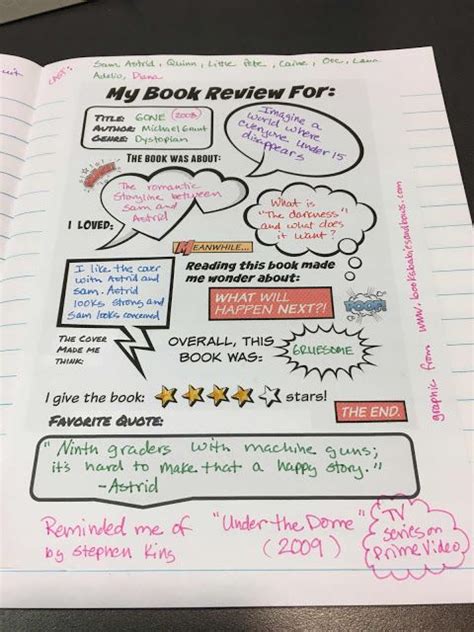 CAST:
Sam, Astrid, Quinn, Little Pete, Caine, Orc, Lana
Adelio, Diana
My Book Review For:
TITLE: GONE (2008)
AUTHOR: Michael Grant
GENRE: Dystopian
Imagine a
world where
everyone under 15
disappears
THE BOOK WAS ABOUT:
The romantic
storyline between
Sam and
Astrid
I LOVED:
What is
"The darkness"
and what does
it want?
MEANWHILE...
Reading this book made
me wonder about:
I like the cover
with Astrid and
Sam. Astrid
looks strong and
Sam looks concerned
WHAT WILL
HAPPEN NEXT?!
POOF!
THE COVER
MADE ME
THINK:
OVERALL, THIS
BOOK WAS:
GRUESOME
I give the book: stars!
THE END.
FAVORITE QUOTE:
"Ninth graders with machine guns;
it's hard to make that a happy story."
-Astrid
Reminded me of "Under the Dome"
by Stephen King (2009)
TV
series on
Prime Video
graphic from www.booksbabiesandbows.com